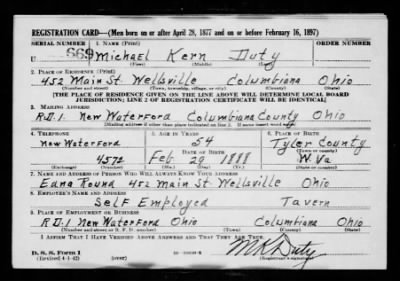 REGISTRATION CARD—(Men born on or after April 28, 1877 and on or before February 16, 1897)
SERIAL NUMBER 1. NAME (Print)
U 669 Michael Kern Duty
(First) (Middle) (Last)
2. PLACE OF RESIDENCE (Print)
452 Main St Wellsville Columbiana Ohio
(Number and street) (Town, township, village, or city) (County) (State)
[THE PLACE OF RESIDENCE GIVEN ON THE LINE ABOVE WILL DETERMINE LOCAL BOARD
JURISDICTION; LINE 2 OF REGISTRATION CERTIFICATE WILL BE IDENTICAL]
3. MAILING ADDRESS
R.D.1. New Waterford Columbiana County Ohio
[Mailing address if other than place indicated on line 2. If same insert word same]
4. TELEPHONE 5. AGE IN YEARS 6. PLACE OF BIRTH
New Waterford 54 Tyler County
DATE OF BIRTH (Town or county)
4572 Feb 29 1888 W.Va
(Exchange) (Number) (Mo.) (Day) (Yr.) (State or country)
7. NAME AND ADDRESS OF PERSON WHO WILL ALWAYS KNOW YOUR ADDRESS
Edna Round 452 Main St Wellsville Ohio
8. EMPLOYER'S NAME AND ADDRESS
Self Employed Tavern
9. PLACE OF EMPLOYMENT OR BUSINESS
R.D.1 New Waterford Ohio Columbiana Ohio
(Number and street or R. F. D. number) (Town) (County) (State)
I AFFIRM THAT I HAVE VERIFIED ABOVE ANSWERS AND THAT THEY ARE TRUE.
D. S. S. Form 1
(Revised 4-1-42) (over) M K Duty
(Registrant's signature)